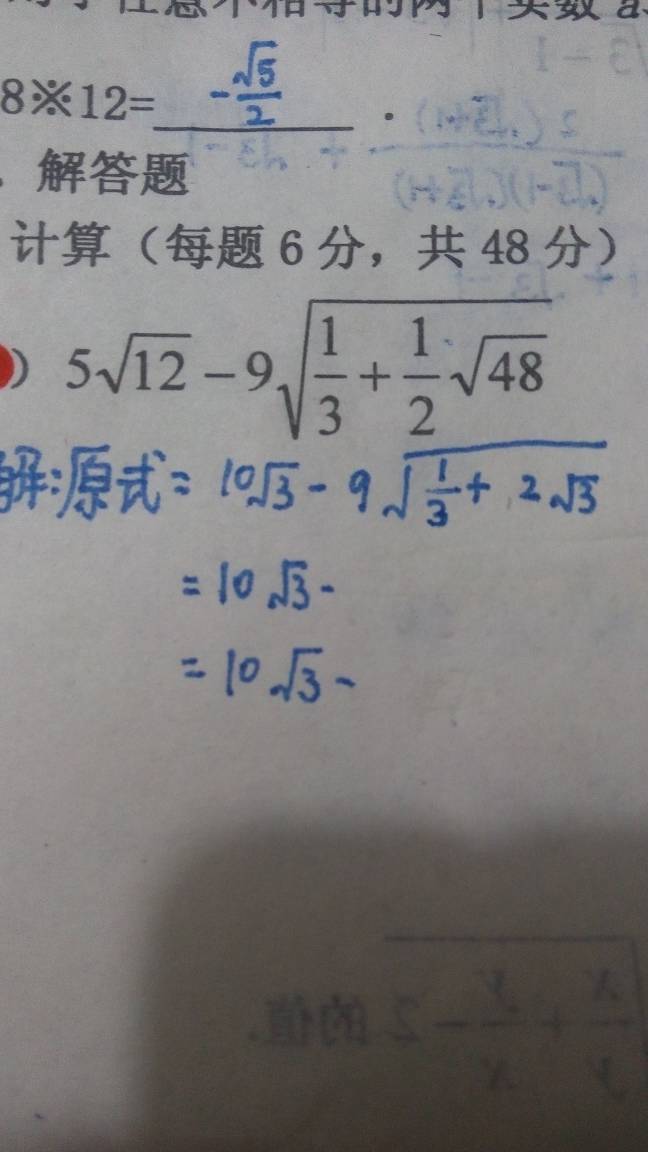 对于任意不相等的两个实数a
8※12= -√5/2 .
解答题
计算（每题6分，共48分）
) 5√12 − 9√(1/3 + 1/2 √48)
解:原式= 10√3 - 9√(1/3 + 2√3)
= 10√3 -
= 10√3 -